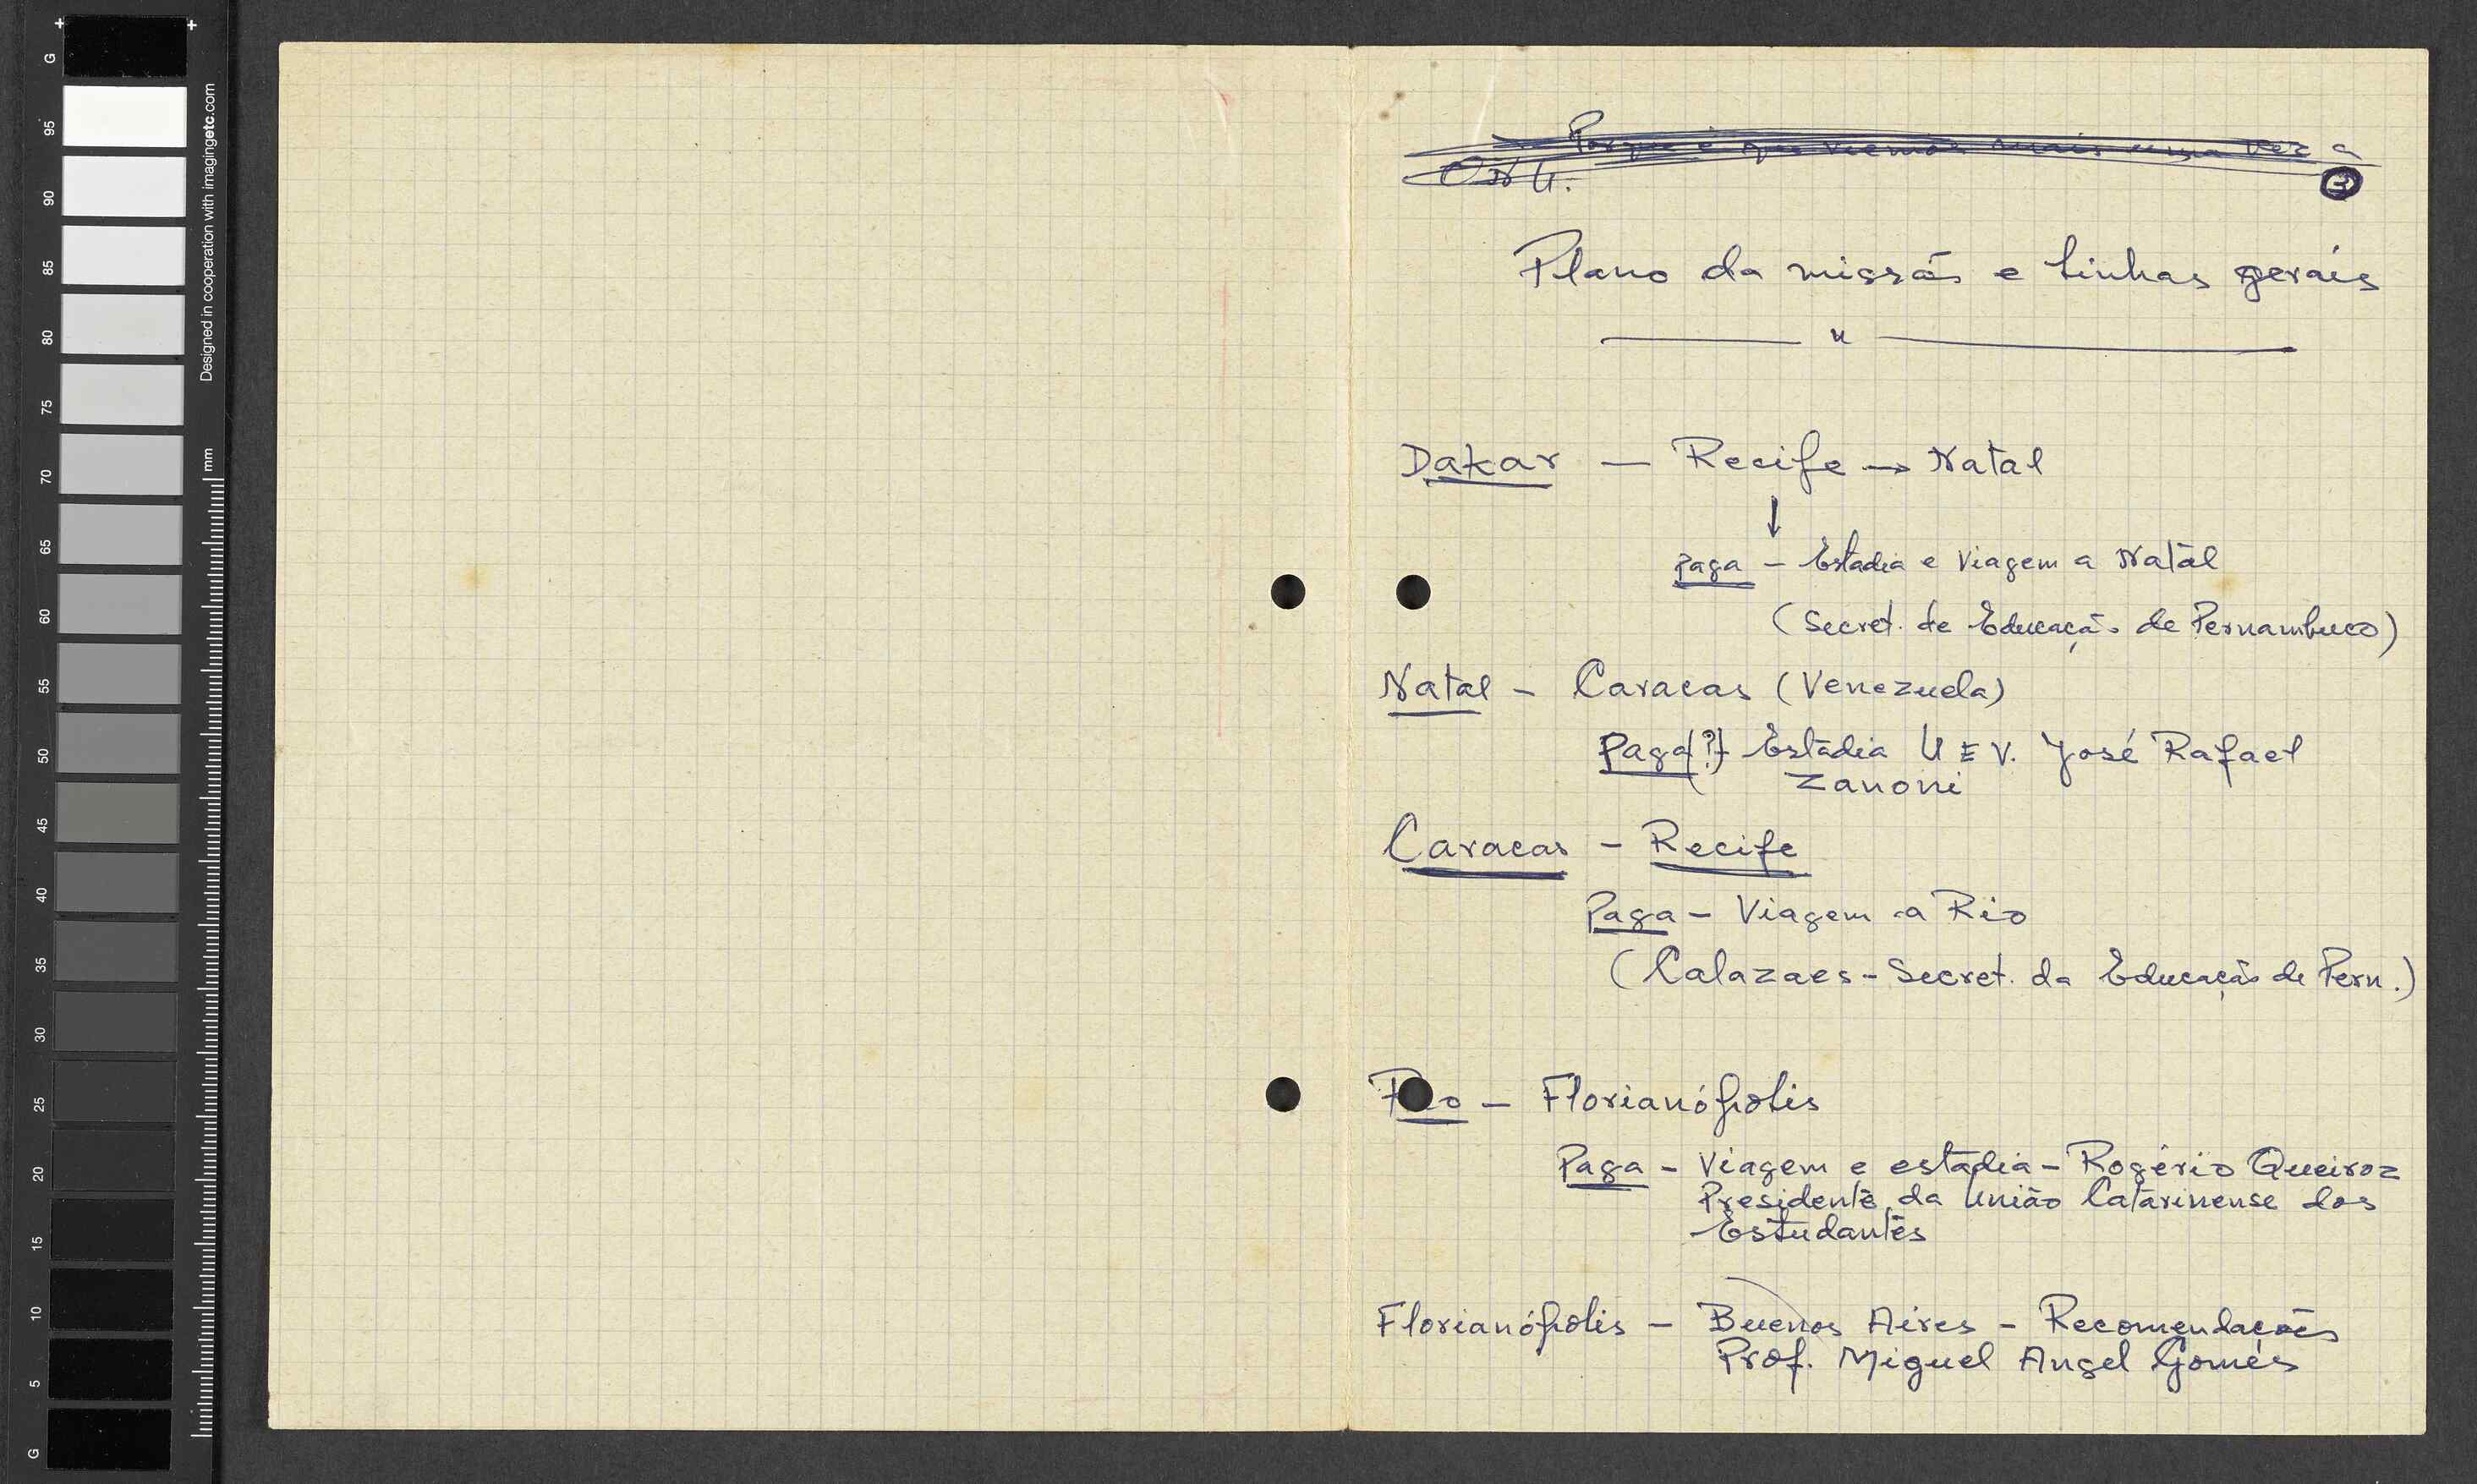 G
95
90
85
80
75
70
65
60
55
50
45
40
35
30
25
20
15
10
5
G
Designed in cooperation with imagingetc.com
mm
Porque é que viemos mais uma vez a
ONU.
3
Plano da missão e linhas gerais
x
Dakar — Recife → Natal
↓
Paga – Estadia e Viagem a Natal
(Secret. de Educação de Pernambuco)
Natal – Caracas (Venezuela)
Paga(?) Estádia U E V. José Rafael
Zanoni
Caracas – Recife
Paga – Viagem a Rio
(Calazaes – Secret. da Educação de Pern.)
Rio – Florianópolis
Paga – Viagem e estadia – Rogério Queiroz
Presidente da União Catarinense dos
Estudantes
Florianópolis – Buenos Aires – Recomendações
Prof. Miguel Angel Gomés